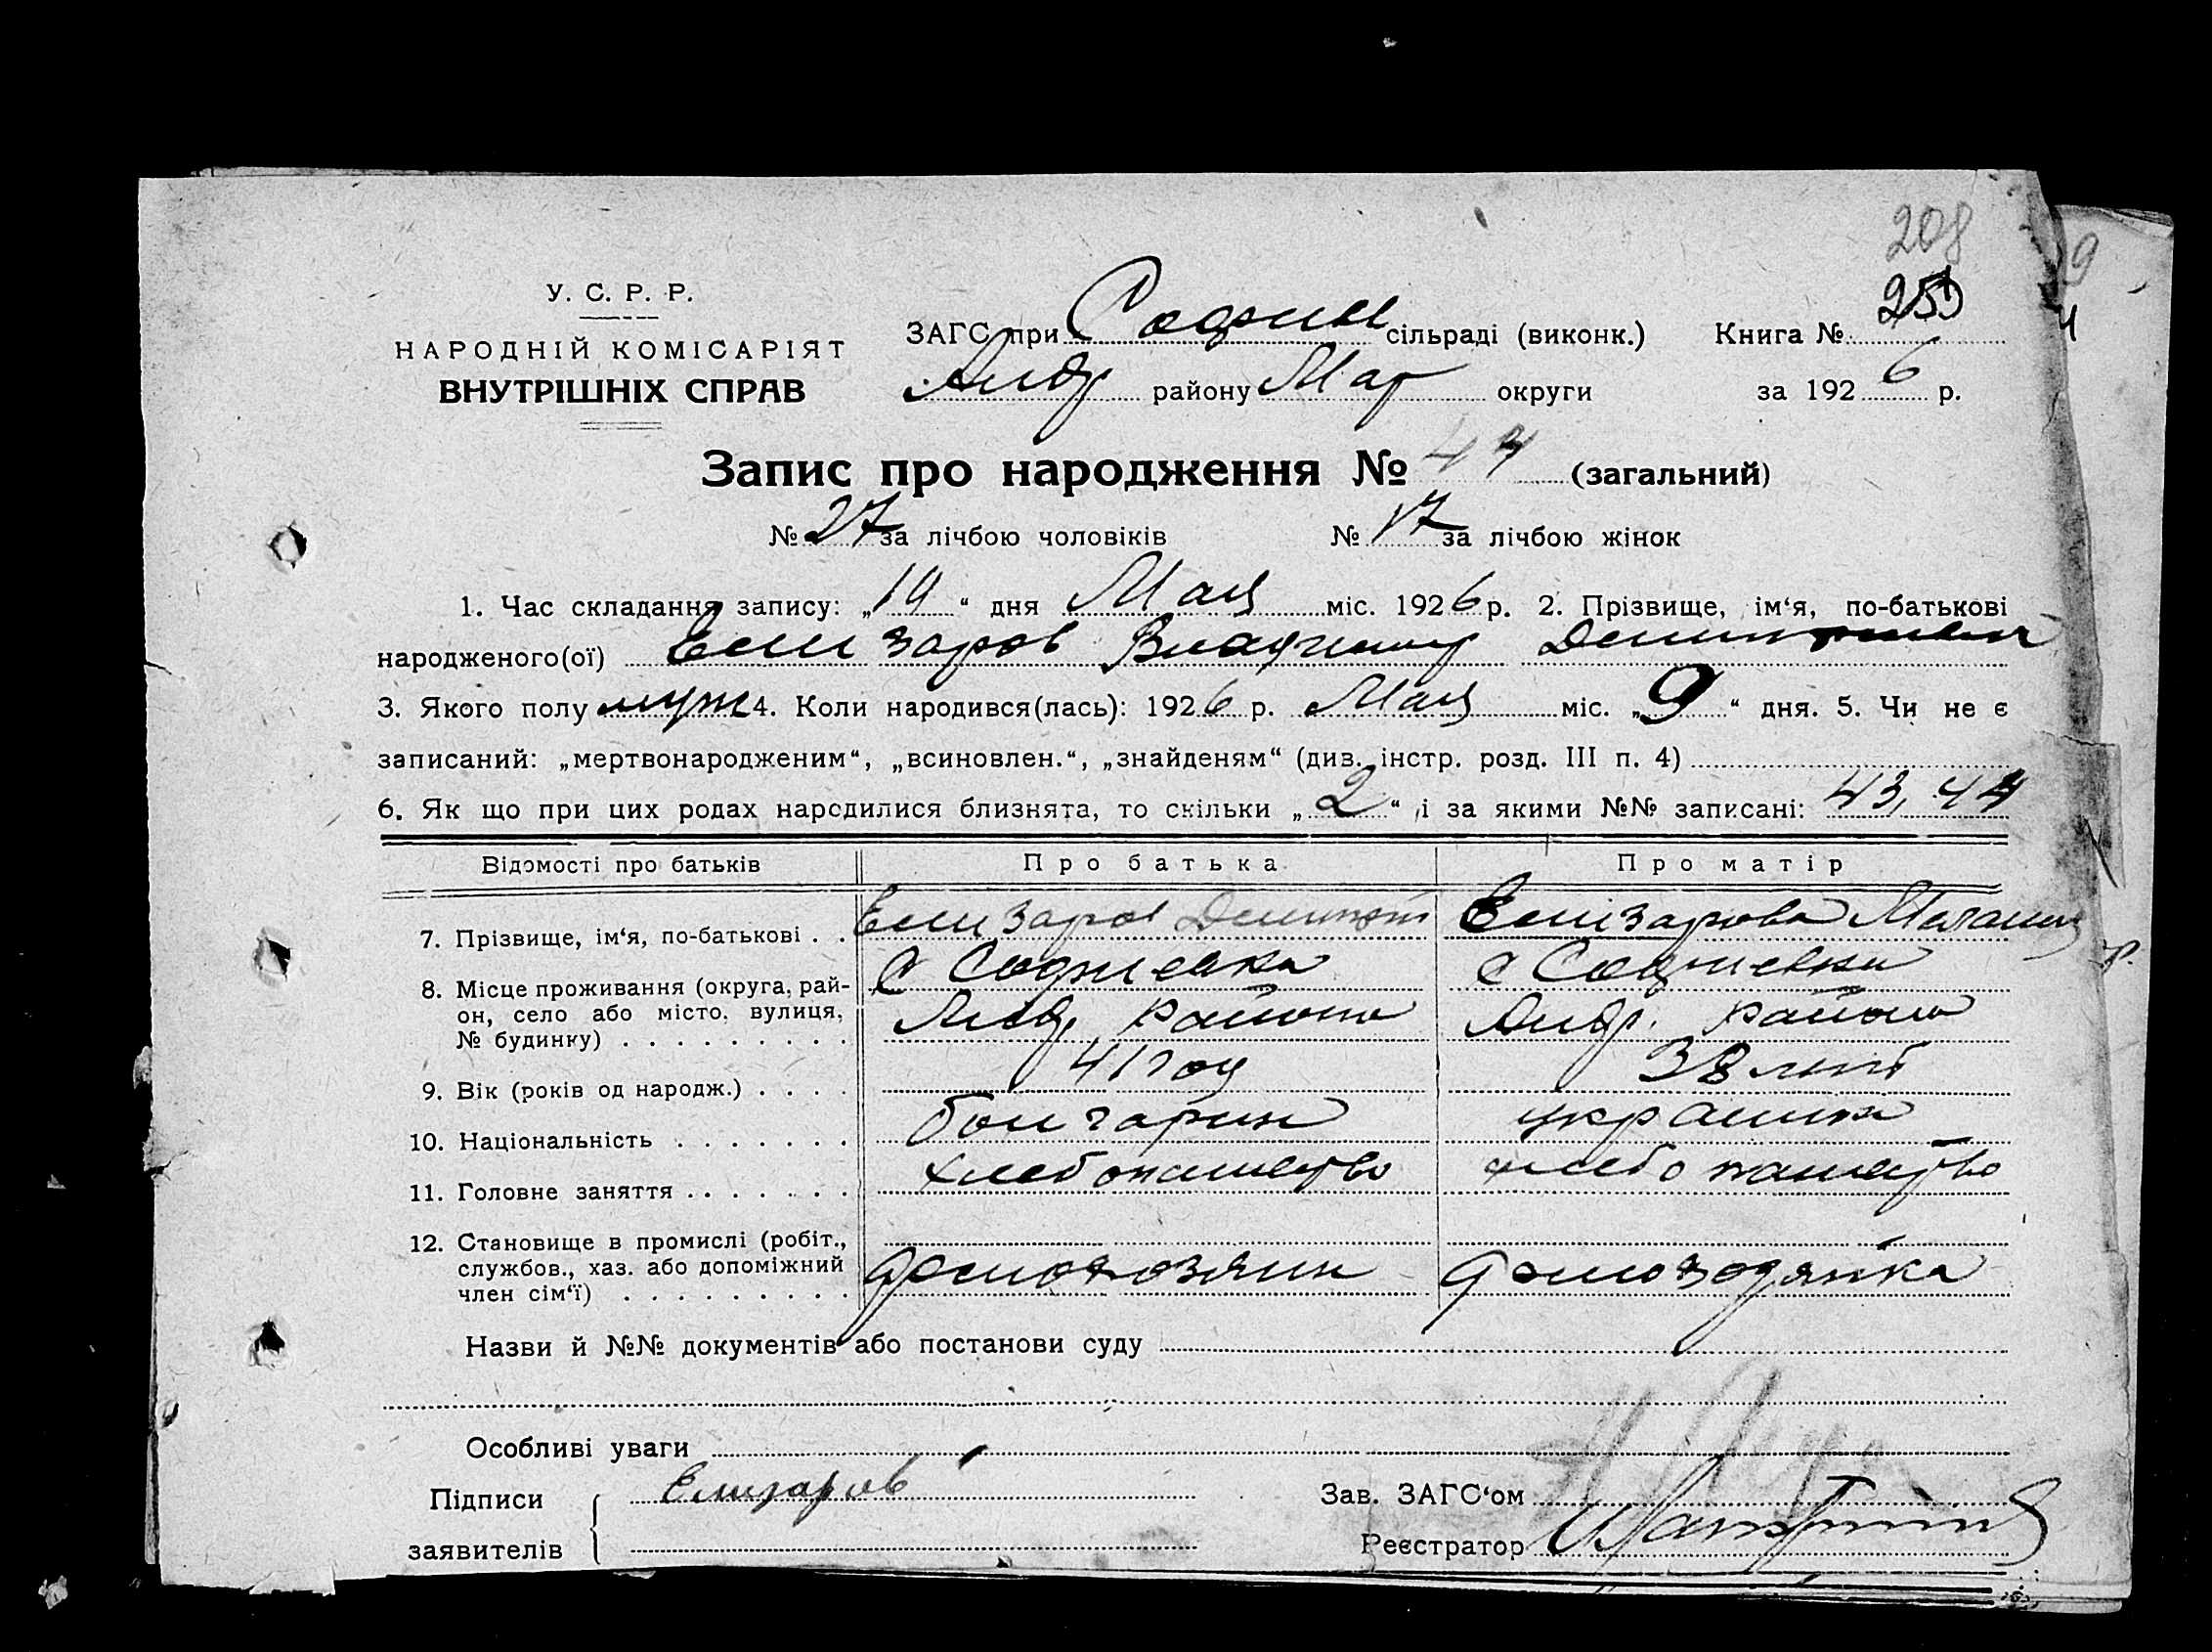 208
У. С. Р. Р.
НАРОДНІЙ КОМІСАРІЯТ
ВНУТРІШНІХ СПРАВ
ЗАГС при Софии сільраді (виконк.) Книга №
Андр району Мар округи за 1926 р.
Запис про народження № 44 (загальний)
№ 27 за лічбою чоловіків № 17 за лічбою жінок
1. Час складання запису: „19“ дня Мая міс. 1926 р. 2. Прізвище, ім‘я, по-батькові
народженого(ої) Елизаров Владимир
3. Якого полу муж 4. Коли народився(лась): 1926 р. Мая міс. „9“ дня. 5. Чи не є
записаний: „мертвонародженим“, „всиновлен.“, „знайденям“ (див. інстр. розд. III п. 4)
6. Як що при цих родах народилися близнята, то скільки „2“ і за якими №№ записані: 43, 44
Відомості про батьків Про батька Про матір
7. Прізвище, ім‘я, по-батькові . . Елизаров Елизарова
8. Місце проживання (округа, рай- С Софиевка С Софиевка
он, село або місто, вулиця, Андр. района Андр. района
№ будинку) . . . . . . . . .
9. Вік (років од народж.) . . . . 41 год 38 лет
10. Національність . . . . . . . болгарин украинка
11. Головне заняття . . . . . . . хлебопашество хлебопашество
12. Становище в промислі (робіт.,
службов., хаз. або допоміжний домохозяин
член сім‘ї) . . . . . . . . .
Назви й №№ документів або постанови суду
Особливі уваги
Підписи Елизаров Зав. ЗАГС‘ом
заявителів Реєстратор